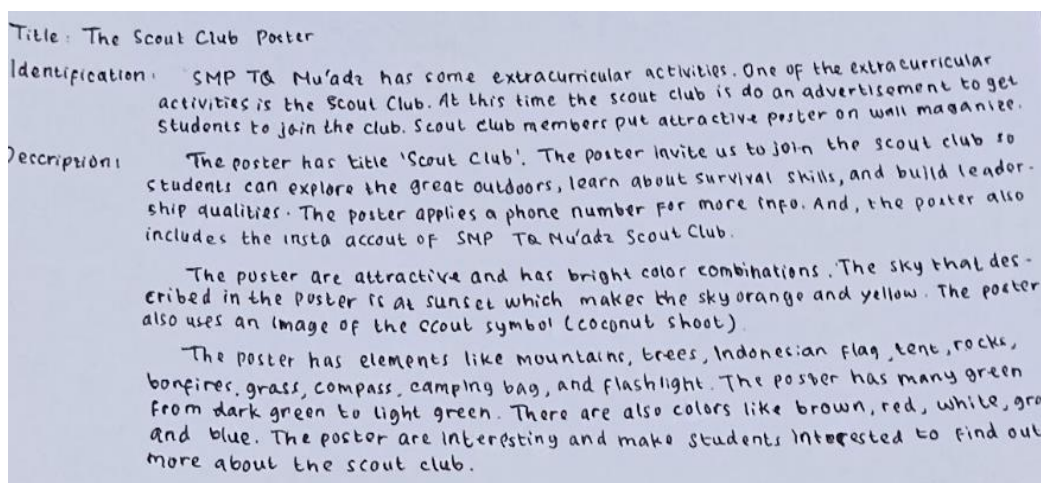 Title : The Scout Club Poster
Identification : SMP TQ Mu'adz has some extracurricular activities. One of the extracurricular
activities is the Scout Club. At this time the scout club is do an advertisement to get
students to join the club. Scout club members put attractive poster on wall maganize.
Description : The poster has title 'Scout Club'. The poster invite us to join the scout club so
students can explore the great outdoors, learn about survival skills, and build leader-
ship qualities. The poster applies a phone number for more info. And, the poster also
includes the insta accout of SMP TQ Mu'adz Scout Club.
The poster are attractive and has bright color combinations. The sky that des-
cribed in the poster is at sunset which makes the sky orange and yellow. The poster
also uses an image of the scout symbol (coconut shoot)
The poster has elements like mountains, trees, Indonesian flag, tent, rocks,
bonfires, grass, compass, camping bag, and flashlight. The poster has many green
from dark green to light green. There are also colors like brown, red, white,
and blue. The poster are interesting and make students interested to find out
more about the scout club.